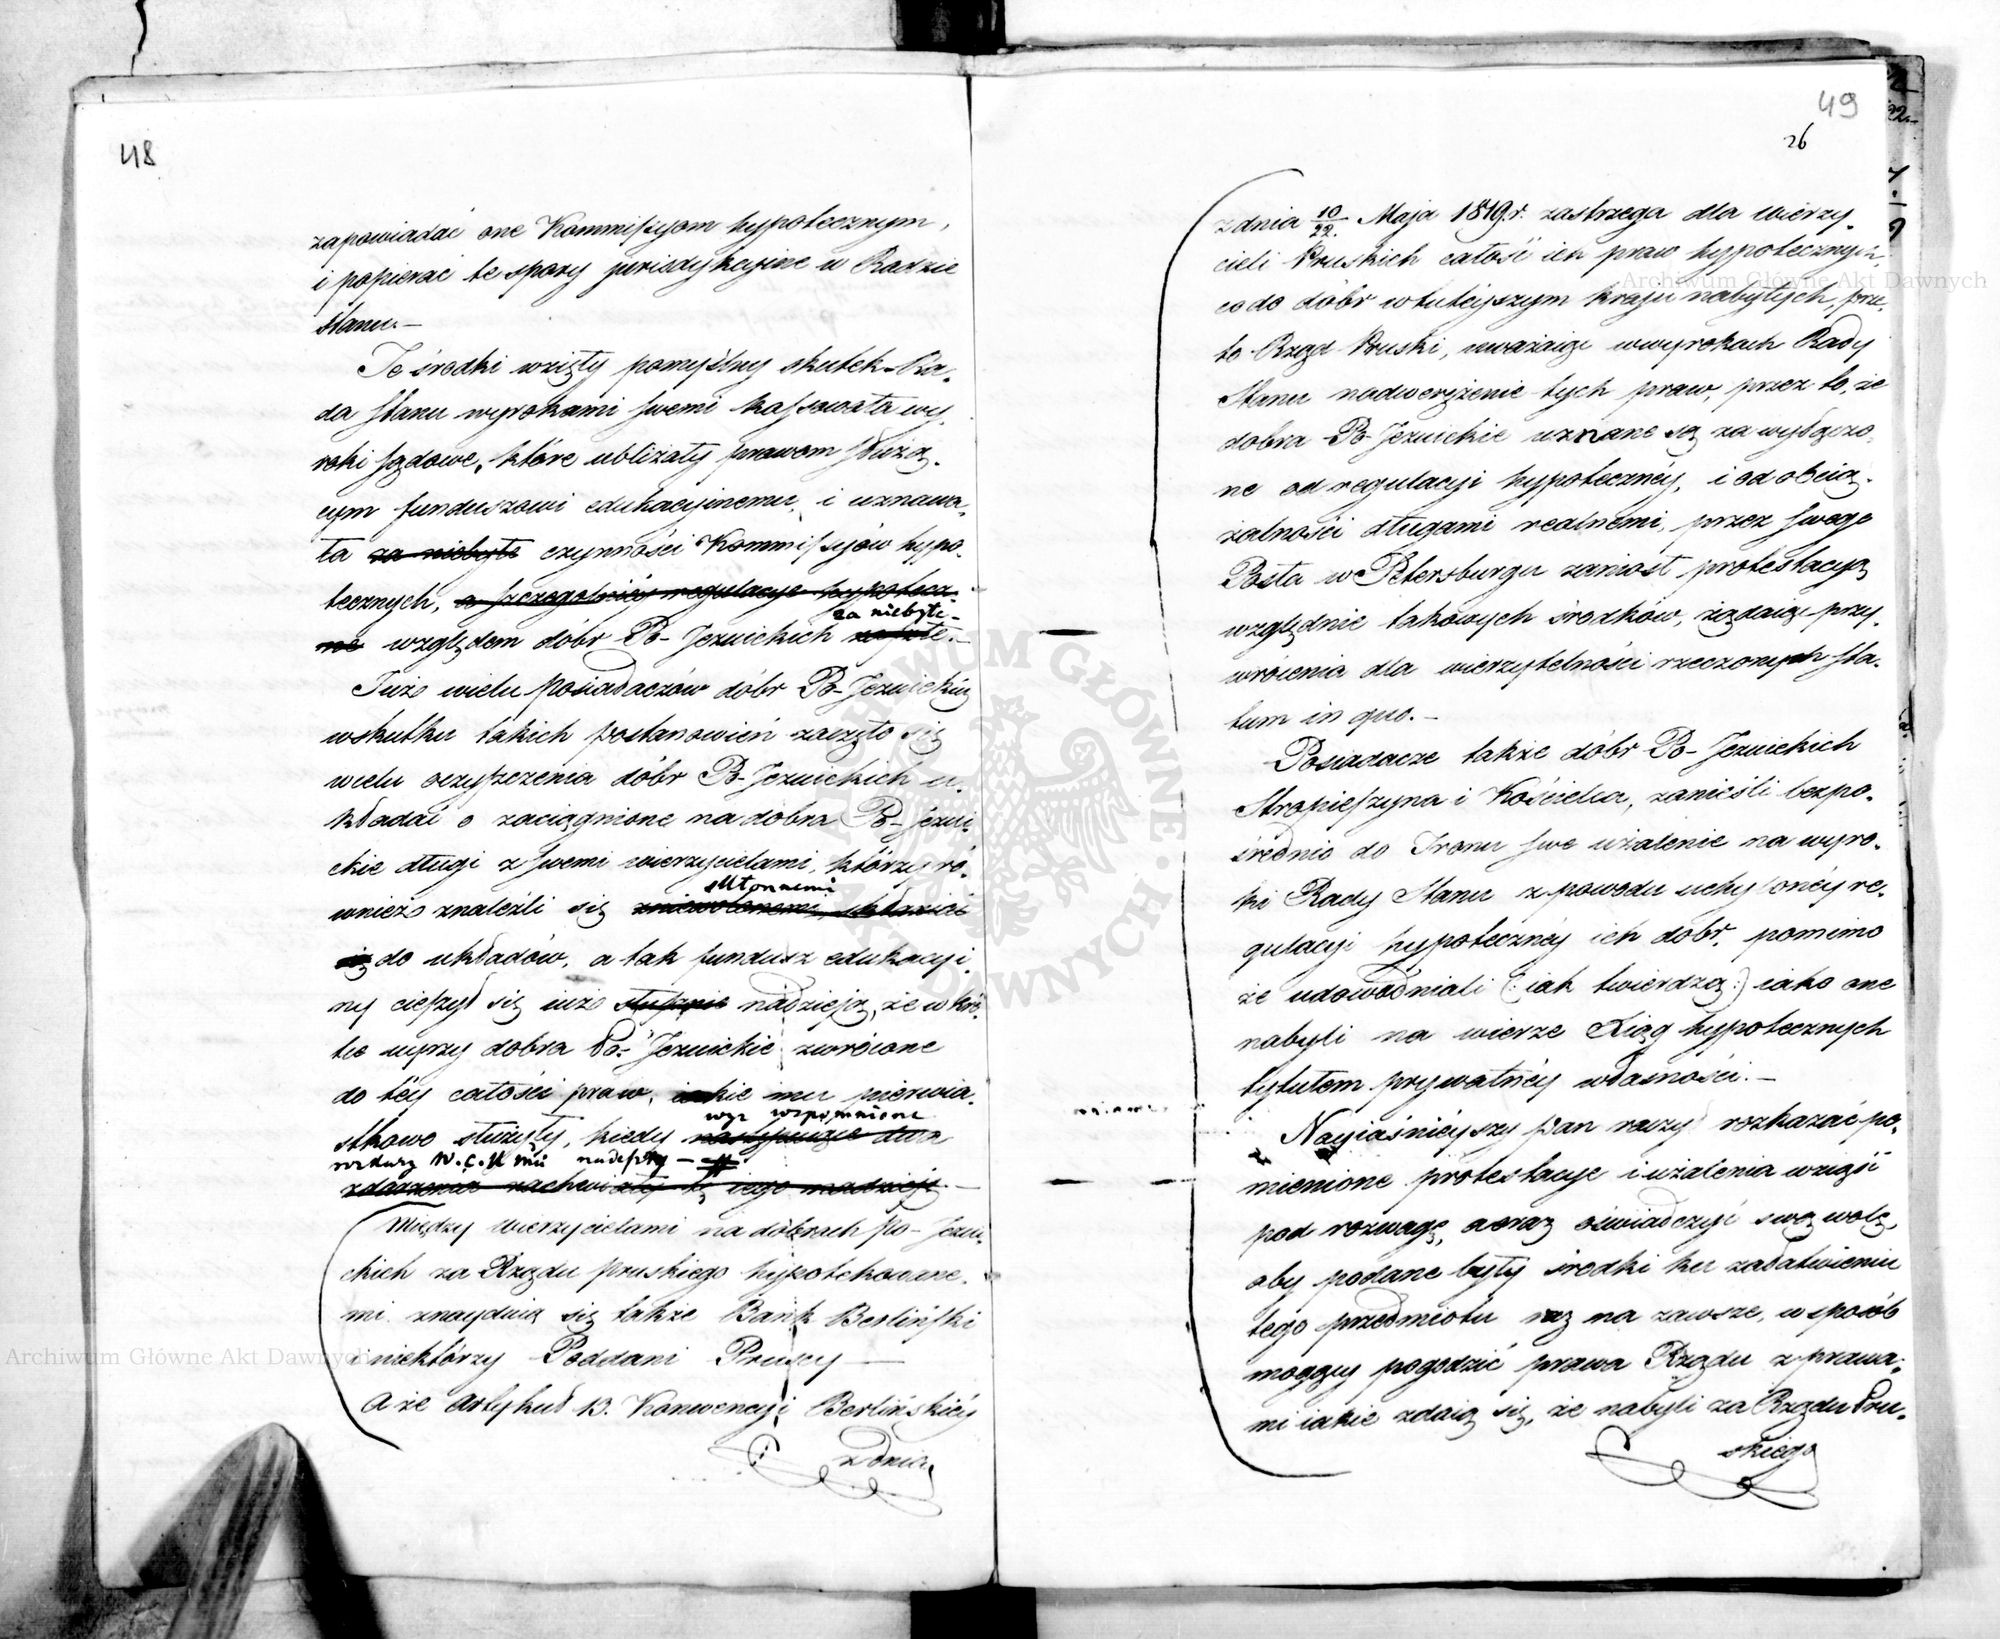 48
zapowiadać one Kommissyom hypotecznym,
i popierać te spory jurisdykcyjne w Radzie
Stanu.—
Te środki wzięły pomyślny skutek. Ra-
da Stanu wyrokami swemi kassowała wy-
roki sądowe, które ubliżały prawom służą-
cym funduszowi edukacyjnemu, i uznawa-
ła za niebyłe czynności Kommissyów hypo-
tecznych, a szczególniéy regulacye hypotecz-
za niebyłe.—
ne względem dóbr Po-Jezuickich
Już wielu posiadaczów dóbr Po-Jezuickich
wskutku takich postanowień zaczęło się
wielu oczyszczenia dóbr Po-Jezuickich u-
kładać o zaciągnione na dobra Po-Jezui-
ckie długi z swemi wierzycielami, którzy ró-
skłonnemi
wnież znaleźli się zniewolonemi
się do układów, a tak fundusz edukacyi-
ny cieszył się już słusznie nadzieją, że w kró-
tce uyrzy dobra Po-Jezuickie zwrócone
do téy całości praw, iakie mu pierwia-
wyż wspomnione
stkowo służyły, kiedy następuiące dwa
nadeszły —
zdarzenia zachwiały tę iego nadzieję —
Między wierzycielami na dobrach Po-Jezui-
ckich za Rządu pruskiego hypotekowane-
mi znayduią się także Bank Berliński
i niektórzy Poddani Pruscy —
A że Artykuł 13. Konwencyi Berlińskiéy
z dnia
49
26
z dnia 10/22. Maja 1819 r. zastrzega dla wierzy-
cieli Pruskich całość ich praw hypotecznych
co do dóbr w tuteyszym kraju nabytych, prze-
to Rząd Pruski, uważaiąc w wyrokach Rady
Stanu nadwerężenie tych praw, przez to, że
dobra Po-Jezuickie uznane są za wyłączo-
ne od regulacyi hypotecznéy, i od obcią-
żalności długami realnemi, przez swego
Posła w Petersburgu zaniósł protestacyą
względnie takowych środków, żądaiąc przy-
wrócenia dla wierzytelności rzeczonych sta-
tum in quo.—
Posiadacze także dóbr Po-Jezuickich
Stropieszyna i Kościelca, zanieśli bezpo-
średnio do Tronu swe użalenie na wyro-
ki Rady Stanu z powodu uchylonéy re-
gulacyi hypotecznéy ich dóbr, pomimo
że udowodniali (: iak twierdzą :) iako one
nabyli na wierze Xiąg hypotecznych
tytułem prywatnéy własności.—
Nayiaśnieyszy Pan raczył rozkazać po-
mienione protestacye i użalenia wziąść
pod rozwagę, a oraz oświadczyć swą wolę,
aby podane były środki ku załatwieniu
tego przedmiotu raz na zawsze, w sposób
mogący pogodzić prawa Rządu z prawa-
mi iakie zdaią się, że nabyli za Rządu Pru-
skiego
Archiwum Główne Akt Dawnych
Archiwum Główne Akt Dawnych
ARCHIWUM GŁÓWNE AKT DAWNYCH